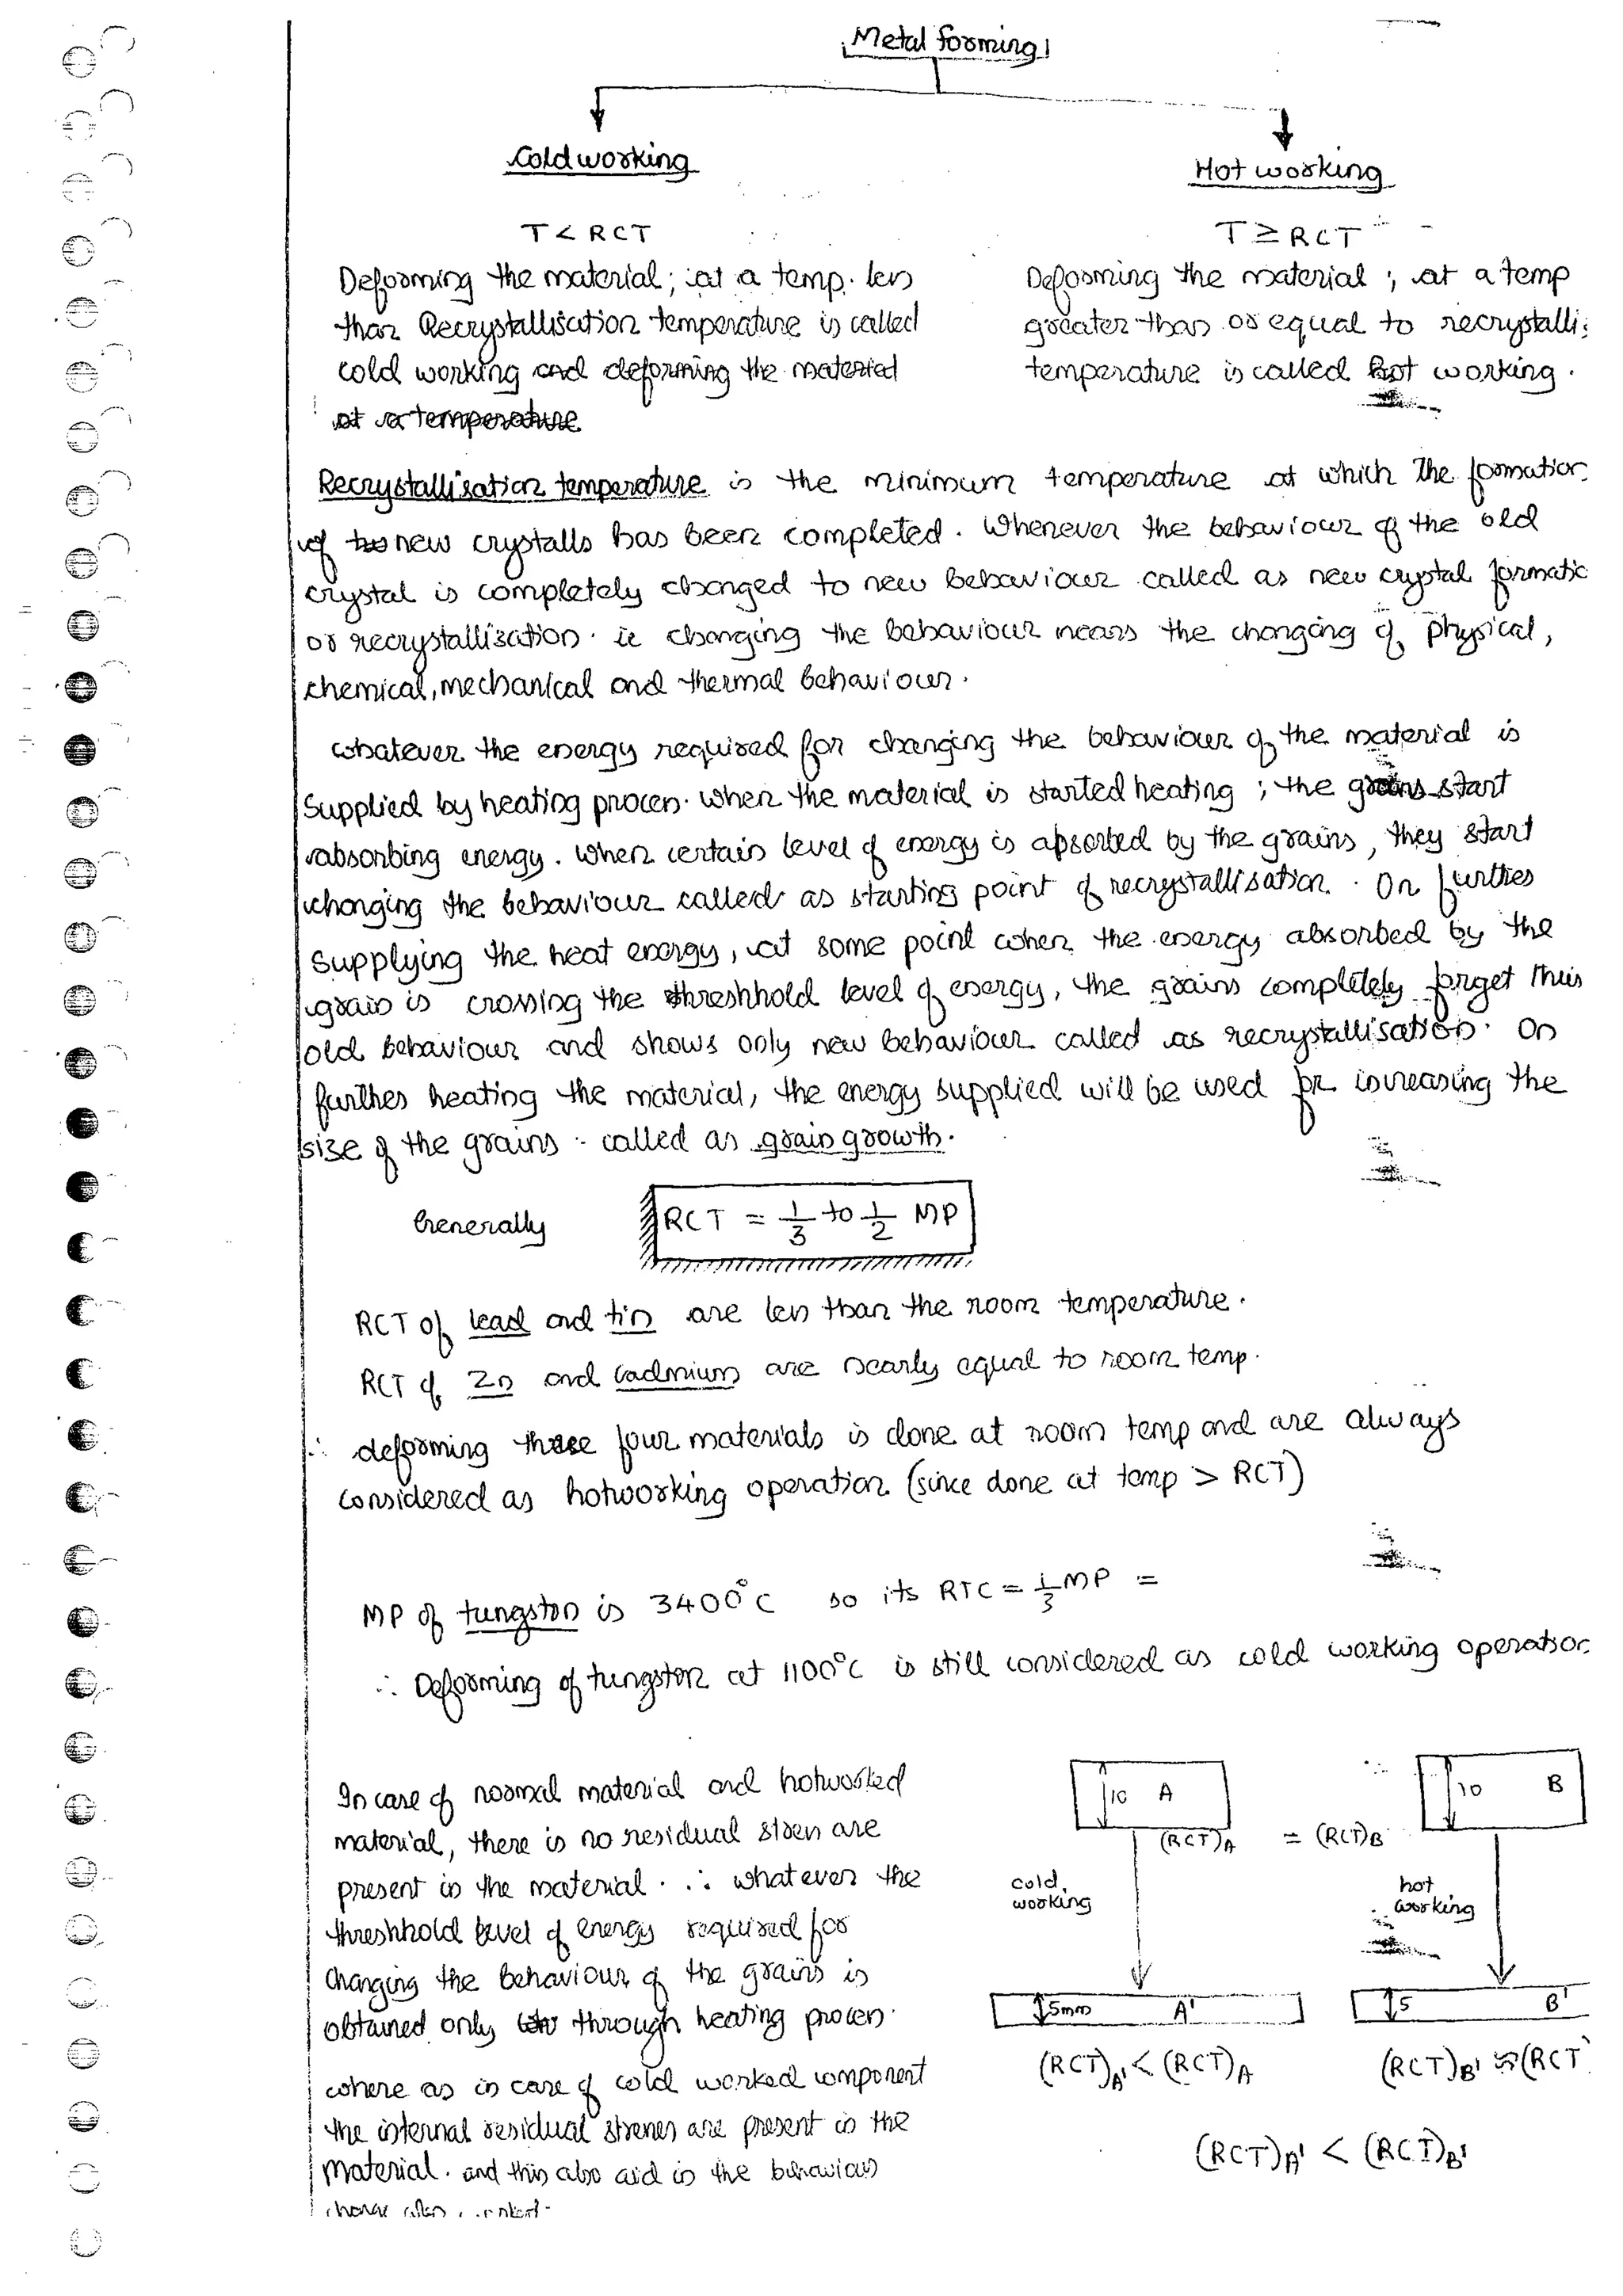 Metal forming
Cold working
Hot working
T < RCT
T ≥ RCT
Deforming the material; at a temp. less
than Recrystallisation temperature is called
cold working and deforming the material
at a temperature
Deforming the material; at a temp
greater than or equal to recrystalli
temperature is called hot working.
Recrystallisation temperature is the minimum temperature at which the formation
of new crystalls has been completed. Whenever the behaviour of the old
crystal is completely changed to new behaviour called as new crystal formatio
or recrystallization. ie changing the behaviour means the changing of physical,
chemical, mechanical and thermal behaviour.
Whatever the energy required for changing the behaviour of the material is
supplied by heating process. When the material is started heating; the grains start
absorbing energy. When certain level of energy is absorbed by the grains, they start
changing the behaviour called as starting point of recrystallisation. On further
supplying the heat energy, at some point when the energy absorbed by the
grain is crossing the threshhold level of energy, the grains completely forget this
old behaviour and shows only new behaviour called as recrystallisation. On
further heating the material, the energy supplied will be used for increasing the
size of the grains - called as grain growth.
Generally RCT = 1/3 to 1/2 MP
RCT of lead and tin are less than the room temperature.
RCT of Zn and Cadmium are nearly equal to room temp.
∴ deforming these four materials is done at room temp and are always
considered as hotworking operation (since done at temp > RCT)
MP of tungston is 3400°C so its RTC = 1/3 MP =
∴ Deforming of tungston at 1100°C is still considered as cold working operation
In case of normal material and hotworked
material, there is no residual stress are
present in the material. ∴ whatever the
threshhold level of energy required for
changing the behaviour of the grains is
obtained only through heating process.
where as in case of cold worked component
the internal residual stresses are present in the
material. and this also aid in the behaviour
change when
10 A
10 B
(RCT)A = (RCT)B
cold
working
hot
working
5mm A'
5 B'
(RCT)A' < (RCT)A
(RCT)B' (RCT
(RCT)A' < (RCT)B'